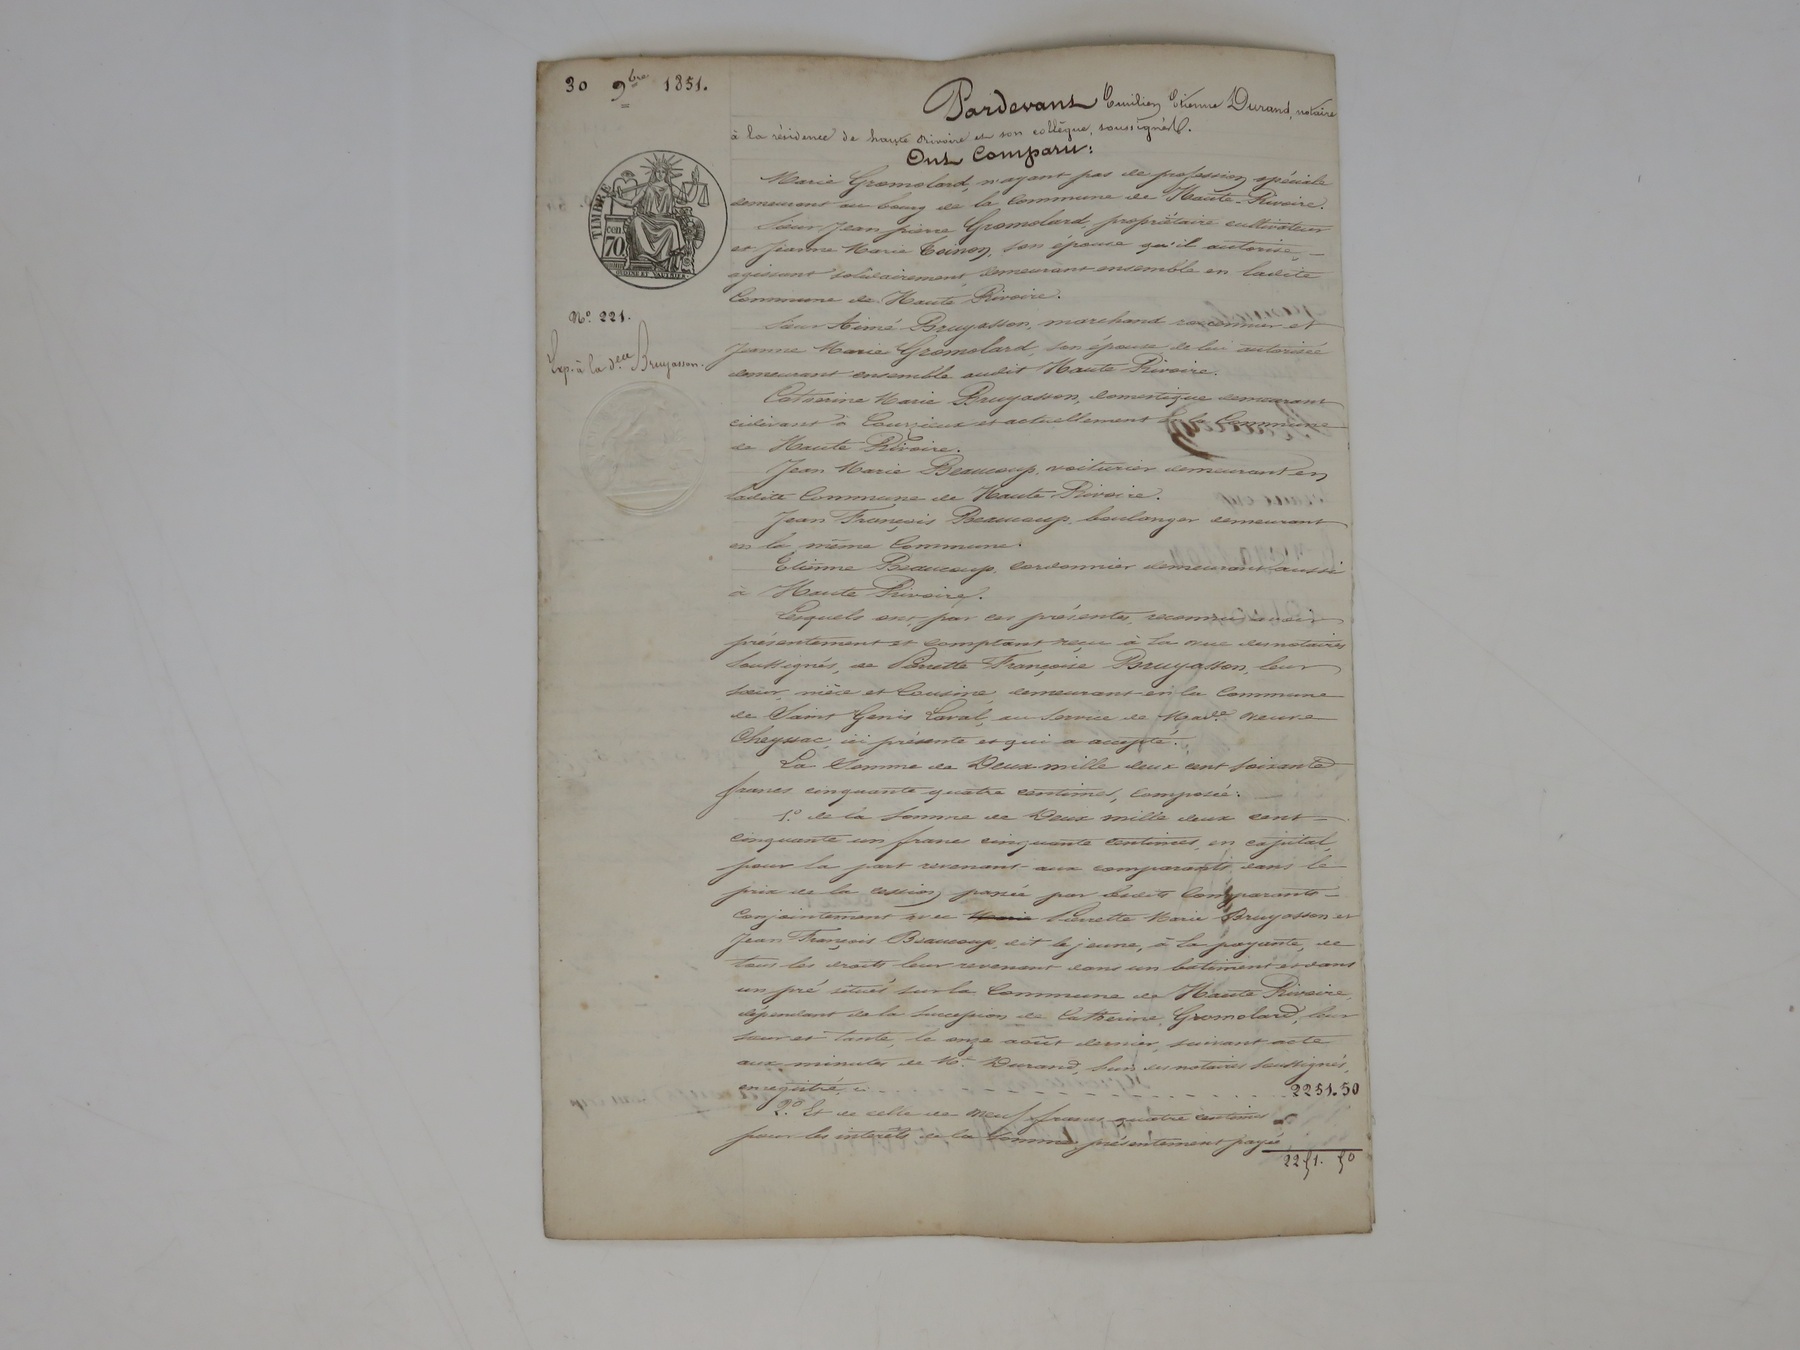 30 9bre 1851.
Pardevant Emilien Etienne Durand, notaire
à la résidence de haute Rivoire et son collègue, soussignés.
Ont Comparu:
TIMBRE
cen.
70
Marie Gromolard, n'ayant pas de profession spéciale
demeurant au bourg de la Commune de Haute-Rivoire.
Sieur Jean pierre Gromolard, propriétaire cultivateur
et Jeanne Marie Coinon, son épouse qu'il autorise,
agissant solidairement, demeurant ensemble en ladite
Commune de Haute Rivoire.
No. 221.
Sieur Aimé Bruyasson, marchand et
Exp. à la delle Bruyasson.
Jeanne Marie Gromolard, son épouse de lui autorisée
demeurant ensemble audit Haute Rivoire.
Catherine Marie Bruyasson, domestique demeurant
cidevant à Courzieux et actuellement la Commune
de Haute Rivoire.
Jean Marie Beaucoup, voiturier demeurant en
ladite Commune de Haute Rivoire.
Jean François Beaucoup, boulanger demeurant
en la même Commune.
Etienne Beaucoup, cordonnier demeurant aussi
à Haute Rivoire.
Lesquels ont, par ces présentes, reconnu avoir
présentement et comptant reçu à la vue des notaires
soussignés, de Pierrette Françoise Bruyasson, leur
sœur, nièce et Cousine, demeurant en la Commune
de Saint Genis Laval, au service de Made. veuve
Cheyssac, ici présente et qui a accepté.
La Somme de Deux mille deux cent soixante
francs cinquante quatre centimes, Composée:
1.o de la Somme de Deux mille deux cent
cinquante un francs cinquante centimes, en capital,
pour la part revenant aux comparants dans le
prix de la cession passée par lesdits Comparants
Conjointement avec Marie Pierrette Marie Bruyasson et
Jean François Beaucoup, dit le jeune, à la payante, de
tous les droits leur revenant dans un bâtiment et dans
un pré situés sur la Commune de Haute Rivoire,
dépendant de la Succession de Catherine Gromolard, leur
sœur et tante, le onze août dernier, suivant acte
aux minutes de Me. Durand, l'un des notaires soussignés,
enregistré, ci 2251.50
2.o Et de celle de neuf francs quatre centimes
pour les intérêts de la Somme présentement payée
2251. 50